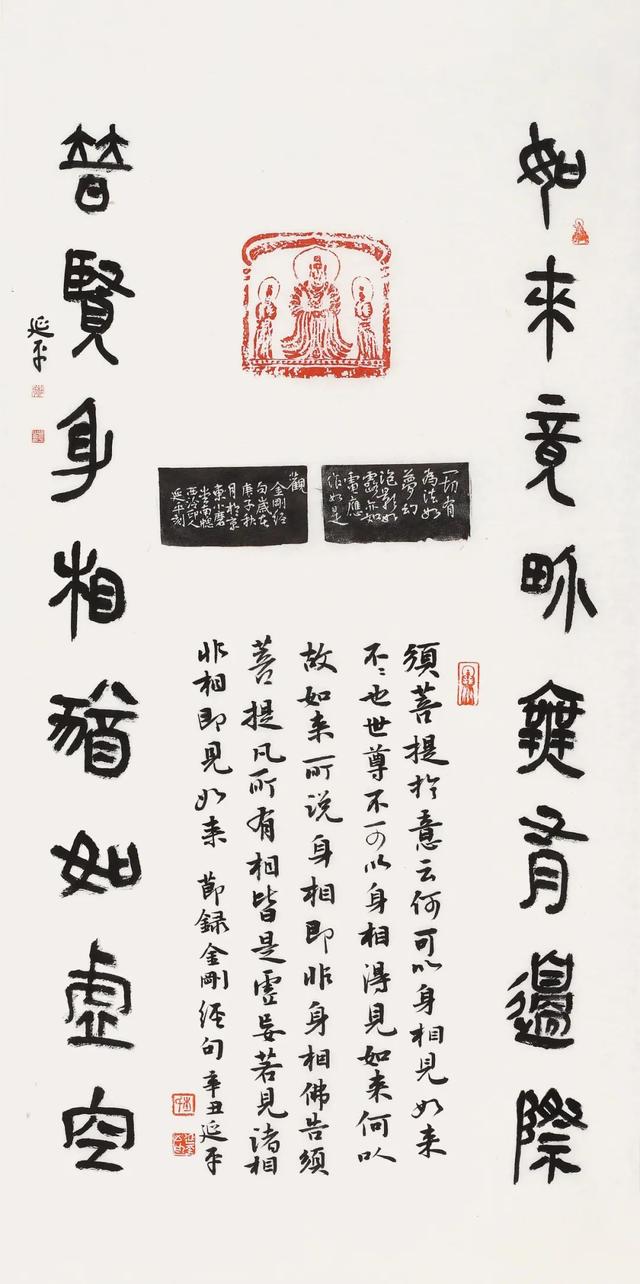 如來竟畍無有邊際
普賢身相猶如虛空
延平
一切有
為法如
夢幻
泡影如
露亦如
電應
作如是
觀
金剛經
句歲在
庚子秋
月於京
東小磨
堂南牕
西泠印人
延平刻
須菩提於意云何可以身相見如来
不〻也世尊不可以身相得見如来何以
故如来所说身相即非身相佛告須
菩提凡所有相皆是虛妄若見諸相
非相即見如来 節録金剛經句 辛丑延平